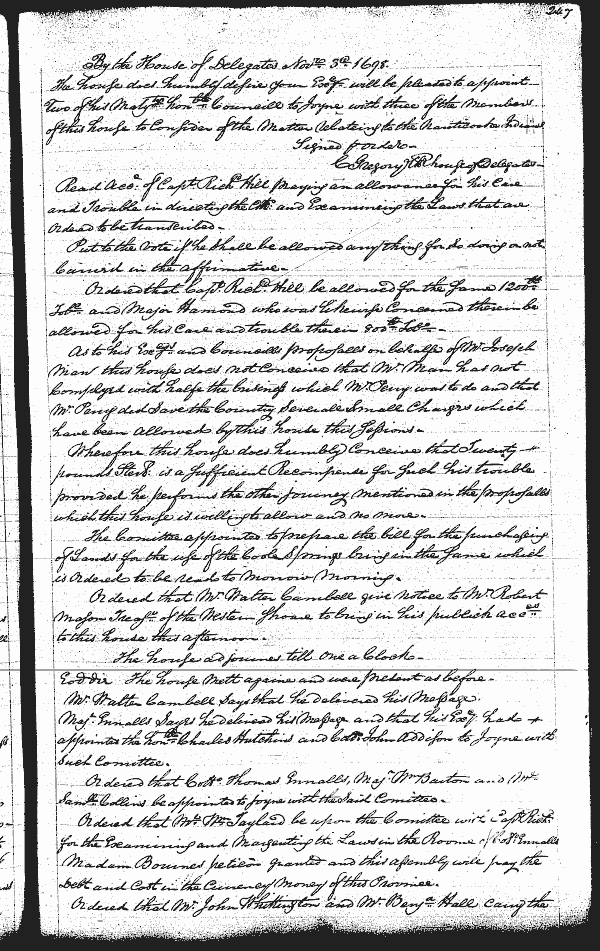 247
By the House of Delegates Nov.r 3d 1698.
The house does humbly desire your Excy will be pleased to appoint
Two of his Matys honble Councill to Joyne with three of the Members
of this house to Consider of the Matter relating to the Nanticoke Indians
Signed p order
C Gregory Clk house of Delegates
Read acct. of Capt. Richd Hill praying an allowance for his Care
and Trouble in directing the Clk: and Examineing the Laws that are
Ordered to be transcribed.
Put to the Vote if he shall be allowed any thing for so doing or not
Carried in the affirmative.
Ordered that Capt. Richd. Hill be allowed for the same 1200lb
Tobo. and Major Hamond who was likewise Concerned therein be
allowed for his Care and trouble therein 800lb Tobo.
As to his Excys. and Councills proposalls on behalfe of Mr. Joseph
Man this house does not Conceive that Mr. Man has not
Complyed with halfe the business which Mr. Perry was to do and that
Mr. Perry did save the Country Severall Small Charges which
have been allowed by this house this Sessions.
Wherefore this house does humbly Conceive that Twenty
pounds Sterl. is a sufficient Recompense for such his trouble
provided he performs the other Journey mentioned in the proposalls
which this house is willing to allow and no more.
The Comittee appointed to prepare the bill for the purchasing
of Lands for the use of the Coole Springs bring in the same which
is Ordered to be read to Morrow Morning.
Ordered that Mr. Walter Cambell give notice to Mr. Robert
Mason Treasr. of the Western Shoare to bring in his publick accots
to this house this afternoon.
The house adjournes till One a Clock.
Eod die The house Mett againe and were present as before.
Mr. Walter Cambell Says that he delivered his Message.
Maj. Ennalls Sayes he delivered his Message and that his Excy. had
appointed the honble Charles Hutchins and Coll. John Addison to Joyne with
such Comittee.
Ordered that Collo. Thomas Ennalls, Maj. Wm Barton and Mr.
Saml. Collins be appointed to joyne with the said Comittee.
Ordered that Mr. Wm Taylard be upon the Comittee with Capt. Richd.
for the Examining and Margenting the Laws in the Roome of Coll. Ennalls
Madam Bournes petition granted and this assembly will pay the
Debt and Cost in the Currency Money of this Province.
Ordered that Mr. John Whittington and Mr. Benja Hall carry the